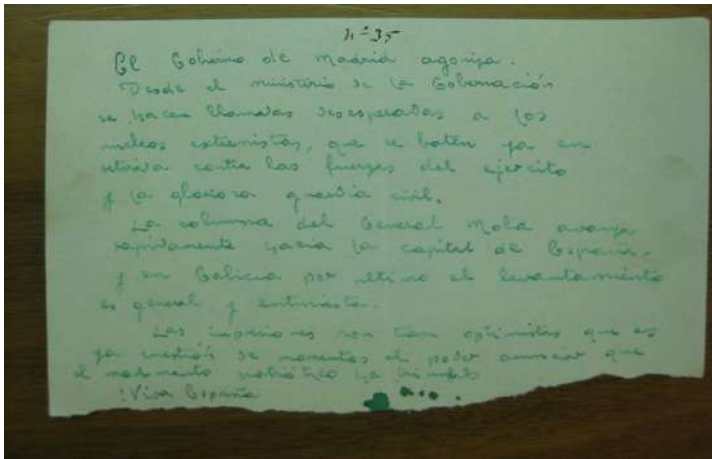 nº 35
El Gobierno de Madrid agoniza.
Desde el ministerio de la Gobernación
se hacen llamadas desesperadas a los
nucleos extremistas, que se baten ya en
retirada contra las fuerzas del ejercito
y la gloriosa guardia civil.
La columna del General Mola avanza
rapidamente hacia la capital de España.
y en Galicia por ultimo el levantamiento
es general y entusiasta.
Las impresiones son tan optimistas que es
ya cuestión de momentos el poder anunciar que
el movimiento patriótico ha triunfado
!Viva España